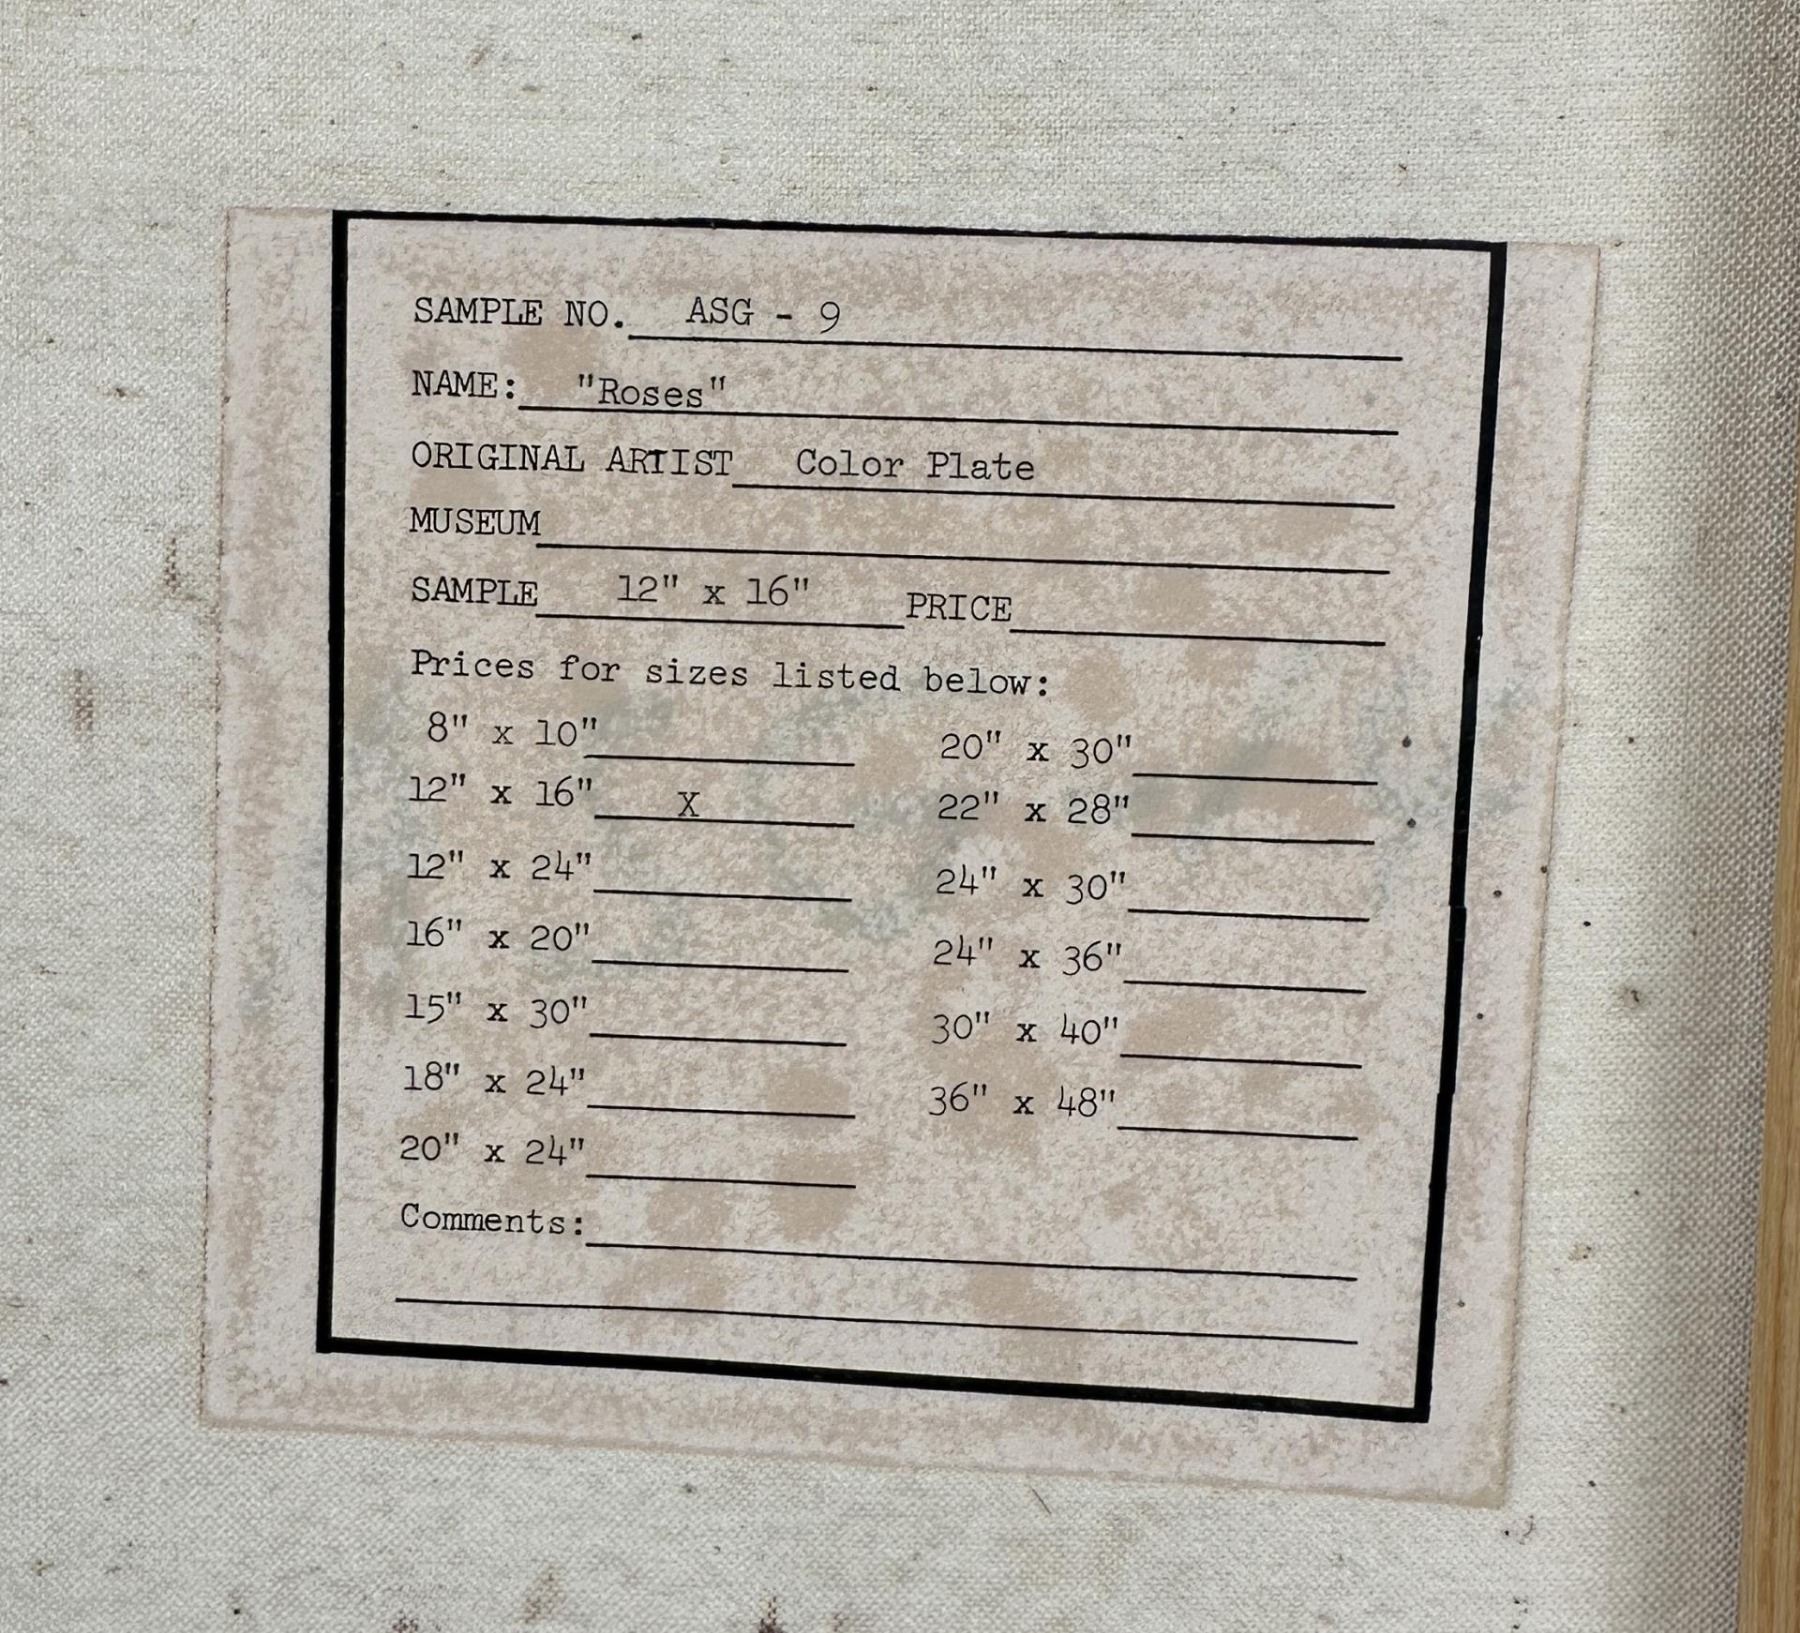 SAMPLE NO. ASG - 9
NAME: "Roses"
ORIGINAL ARTIST Color Plate
MUSEUM
SAMPLE 12" x 16" PRICE
Prices for sizes listed below:
8" x 10" 20" x 30"
12" x 16" X 22" x 28"
12" x 24" 24" x 30"
16" x 20" 24" x 36"
15" x 30" 30" x 40"
18" x 24" 36" x 48"
20" x 24"
Comments: